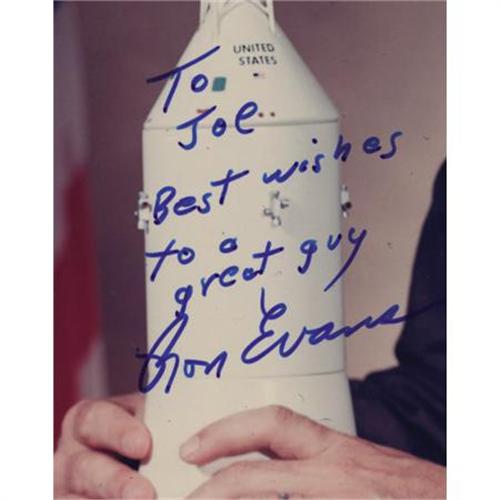 UNITED
STATES
To
Joe
Best wishes
to a
great guy
Ron Evans